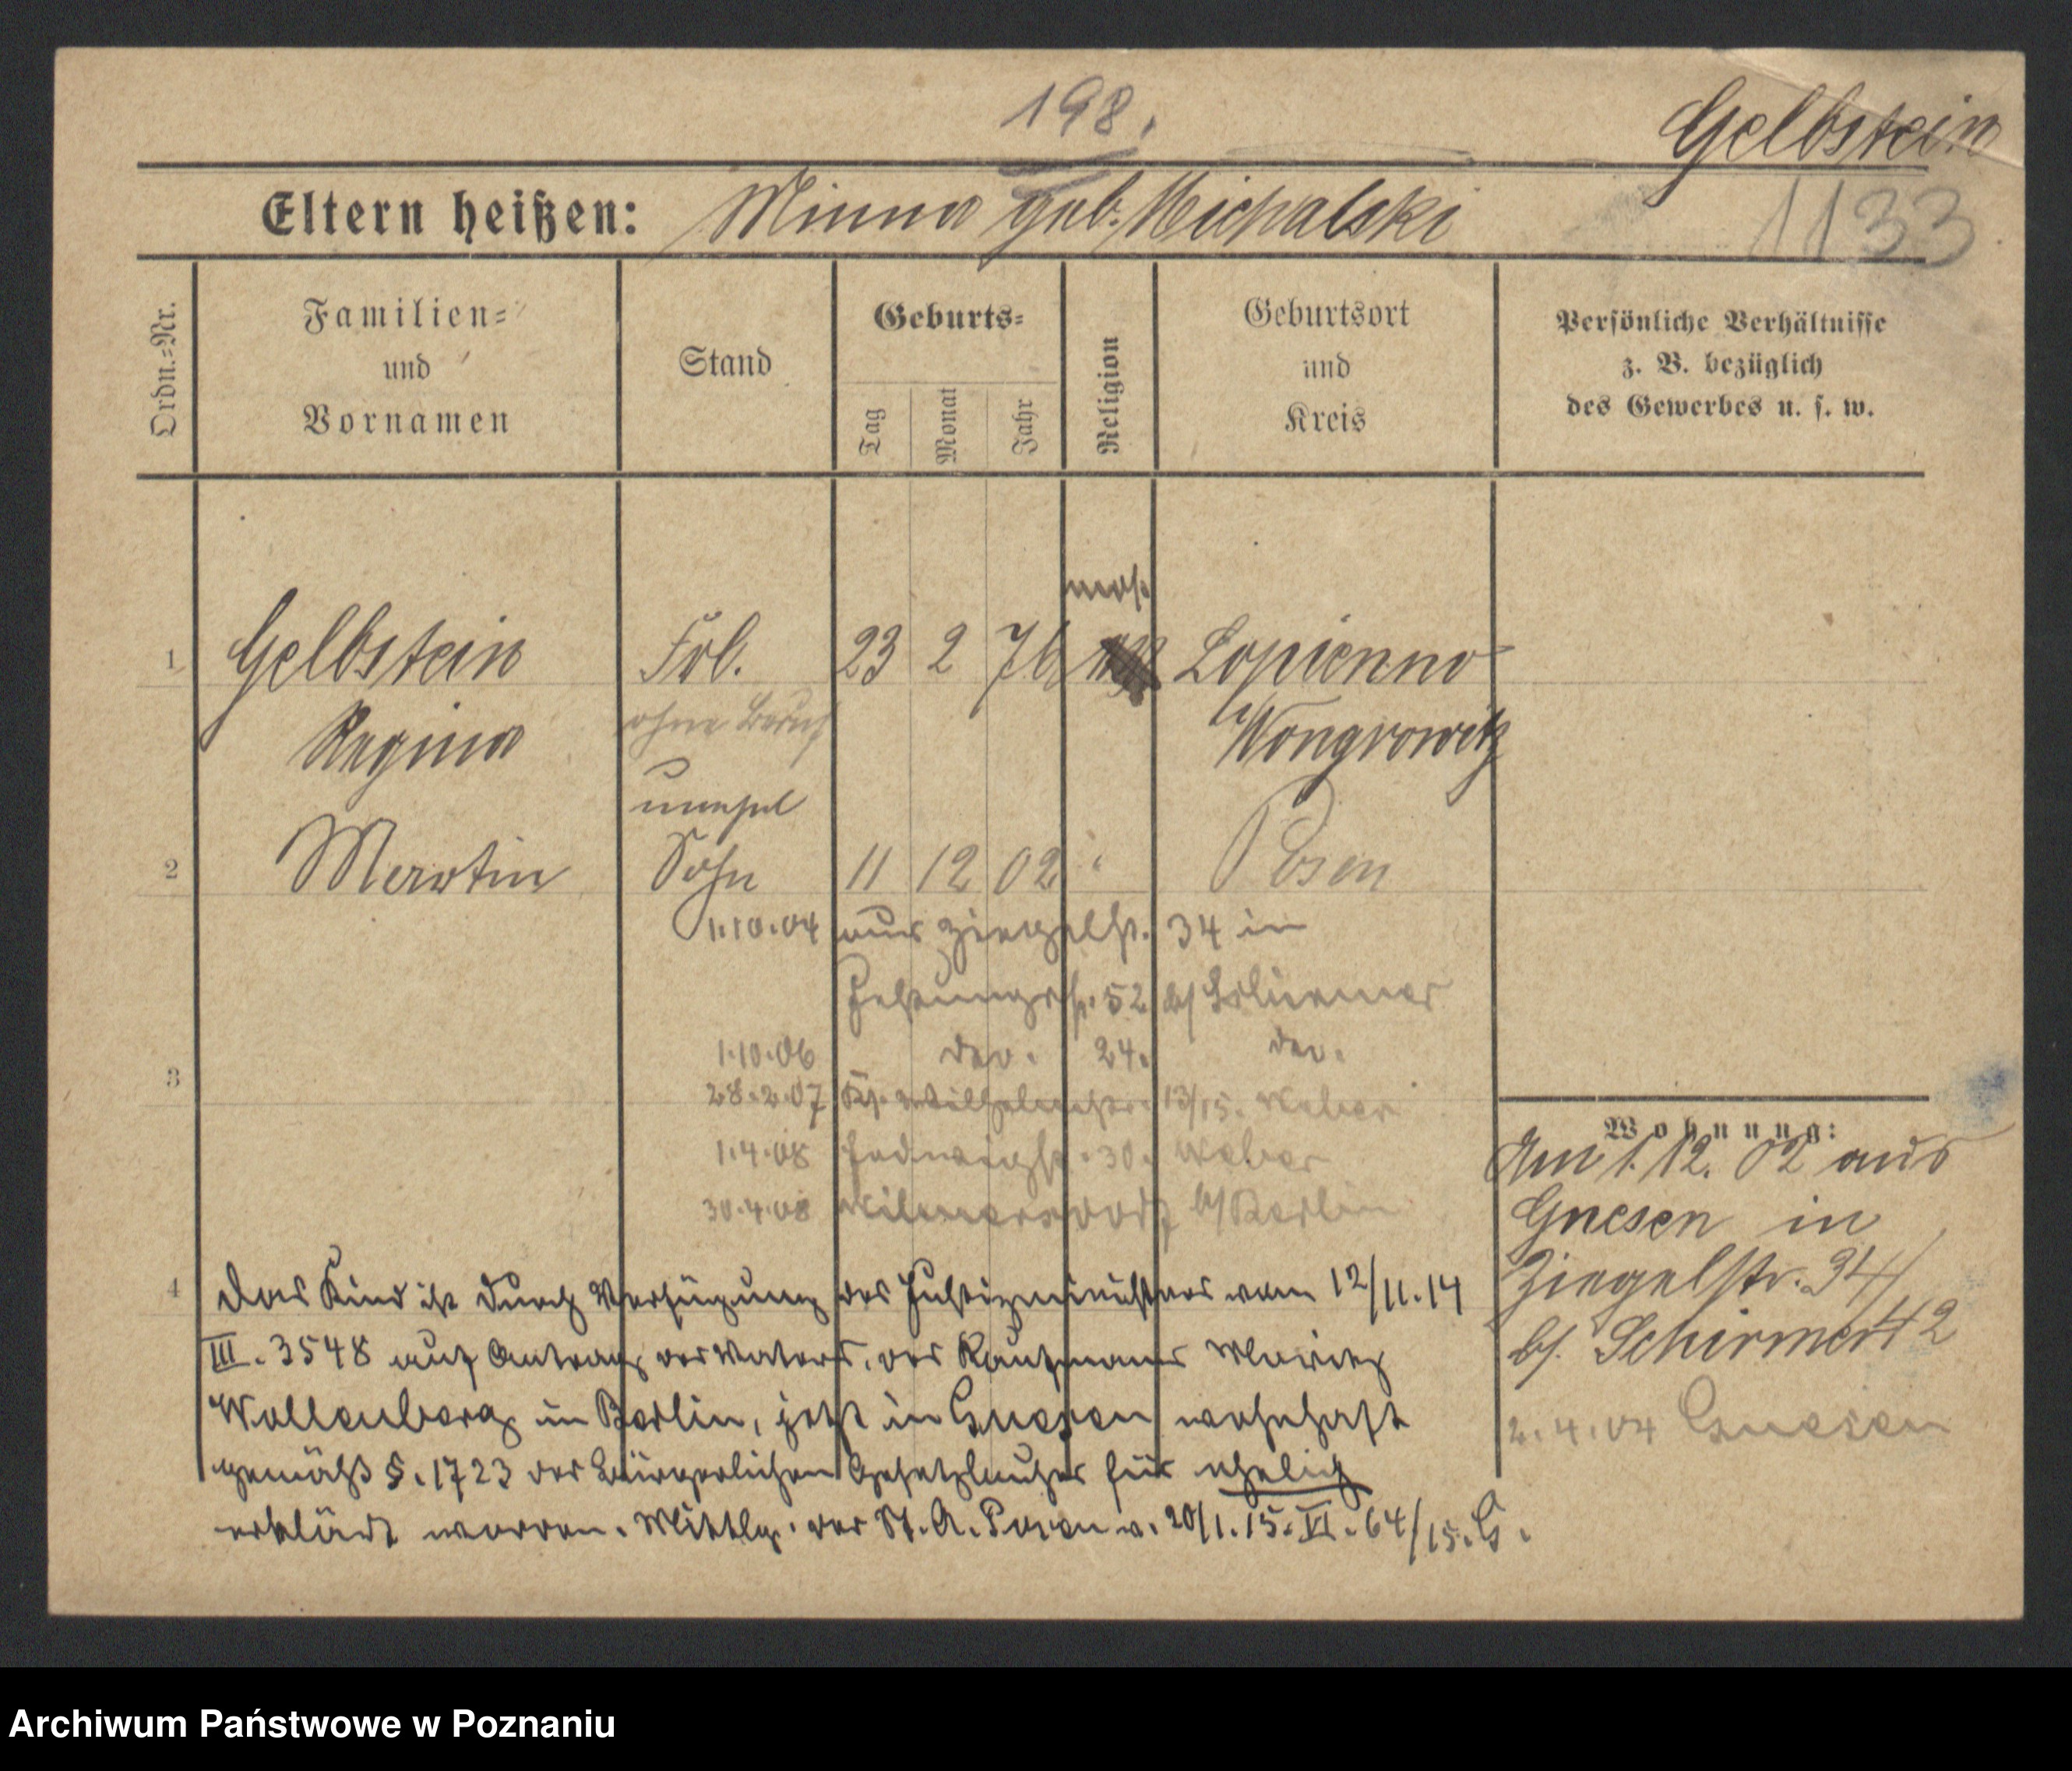 198.
Gelbstein
Eltern heißen: Minna geb. Michalski
1133
Ordn.=Nr.
Familien=
und
Vornamen
Stand
Geburts=
Tag
Monat
Jahr
Religion
Geburtsort
und
Kreis
Persönliche Verhältnisse
z. B. bezüglich
des Gewerbes u. s. w.
mos.
1 Gelbstein Frl. 23 2 76 Lopienno
Regina ohne Beruf Wongrowitz
unehel
2 Martin Sohn 11 12 02 " Posen
1.10.04 aus Ziegelstr. 34 in
Festungsstr. 52 b/
1.10.06 do. 24. do.
3
28.2.07 Kl. Wilhelmstr. 13/15. Weber
1.4.08 Hedwigstr. 30. Weber
30.4.08 Wilmersdorf b/Berlin
Wohnung:
Am 1.12.02 aus
Gnesen in
Ziegelstr. 34/
b/. Schirmer 42
2.4.04 Gnesen
4
Das Kind ist durch Verfügung des Justizministers vom 12/11.14
III. 3548 auf Antrag des Vaters, des Kaufmanns Moritz
Wollenberg in Berlin, jetzt in Gnesen wohnhaft
gemäß §. 1723 des Bürgerlichen Gesetzbuches für ehelich
erklärt worden. Mittlg. des St. A. Posen v. 20/1.15. VI. 64/15. G.
Archiwum Państwowe w Poznaniu